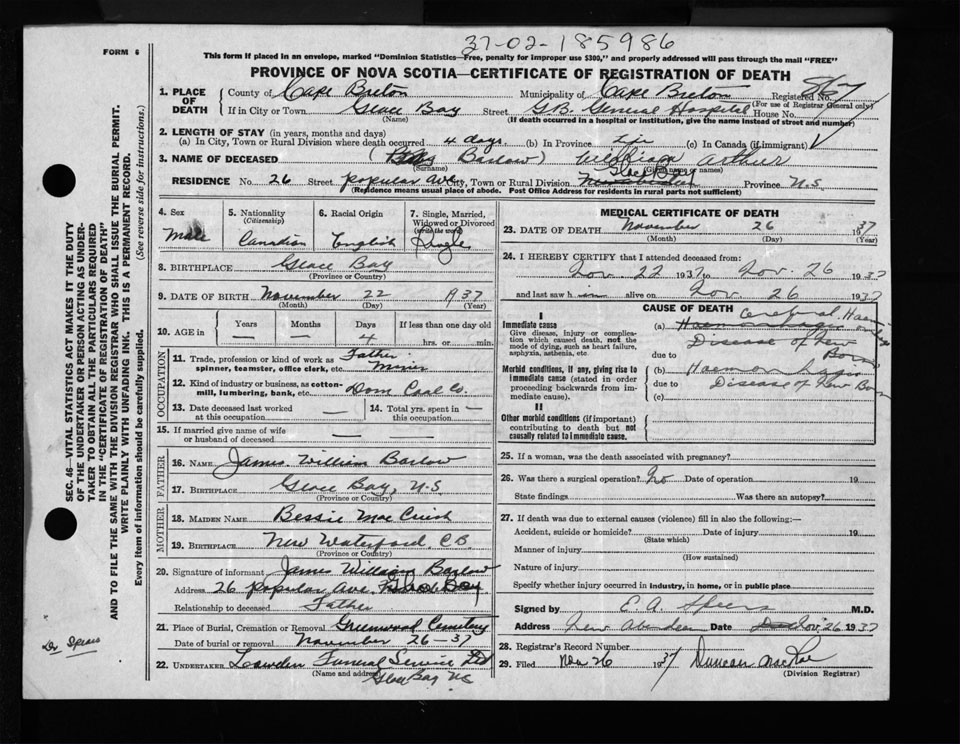 37-02-185986
FORM 6
This form if placed in an envelope, marked "Dominion Statistics—Free, penalty for improper use $300," and properly addressed will pass through the mail "FREE"
PROVINCE OF NOVA SCOTIA—CERTIFICATE OF REGISTRATION OF DEATH
1. PLACE OF DEATH
County of Cape Breton Municipality of Cape Breton Registered No.
(For use of Registrar General only)
If in City or Town Glace Bay Street G.B. General Hospital House No.
(Name) (If death occurred in a hospital or institution, give the name instead of street and number)
2. LENGTH OF STAY (in years, months and days)
(a) In City, Town or Rural Division where death occurred 4 days (b) In Province Life (c) In Canada (if immigrant)
3. NAME OF DECEASED (Baby Barlow) William Arthur
(Surname) (Given name or names)
Glace Bay
RESIDENCE No. 26 Street popular Ave City, Town or Rural Division Province N.S
(Residence means usual place of abode. Post Office Address for residents in rural parts not sufficient)
4. Sex Male
5. Nationality (Citizenship) Canadian
6. Racial Origin English
7. Single, Married, Widowed or Divorced (write the word) Single
8. BIRTHPLACE Glace Bay
(Province or Country)
9. DATE OF BIRTH November 22 1937
(Month) (Day) (Year)
10. AGE in Years — Months — Days 4 If less than one day old hrs. or min.
OCCUPATION
11. Trade, profession or kind of work as spinner, teamster, office clerk, etc. Father Miner
12. Kind of industry or business, as cotton-mill, lumbering, bank, etc. Dom Coal Co.
13. Date deceased last worked at this occupation —
14. Total yrs. spent in this occupation —
15. If married give name of wife or husband of deceased —
FATHER
16. NAME James William Barlow
17. BIRTHPLACE Glace Bay, N.S
(Province or Country)
MOTHER
18. MAIDEN NAME Bessie Mac Cuish
19. BIRTHPLACE New Waterford, C.B.
(Province or Country)
20. Signature of informant James William Barlow
Address 26 popular Ave. Glace Bay
Relationship to deceased Father
21. Place of Burial, Cremation or Removal Greenwood Cemetery
Date of burial or removal November 26-37
22. UNDERTAKER Funeral Service Ltd
(Name and address) Glace Bay NS
MEDICAL CERTIFICATE OF DEATH
23. DATE OF DEATH November 26 1937
(Month) (Day) (Year)
24. I HEREBY CERTIFY that I attended deceased from:
Nov. 22 1937 to Nov. 26 1937
and last saw him alive on Nov. 26 1937
CAUSE OF DEATH
I
Immediate cause
Give disease, injury or complication which caused death, not the mode of dying, such as heart failure, asphyxia, asthenia, etc.
Morbid conditions, if any, giving rise to immediate cause (stated in order proceeding backwards from immediate cause).
II
Other morbid conditions (if important) contributing to death but not causally related to immediate cause.
(a) Cerebral Haemorrhage
Haemorrhagic Disease of New Born
due to
(b) Haemorrhagic
due to Disease of New Born
(c)
25. If a woman, was the death associated with pregnancy?
26. Was there a surgical operation? No Date of operation 19
State findings Was there an autopsy?
27. If death was due to external causes (violence) fill in also the following:—
Accident, suicide or homicide? Date of injury 19
(State which)
Manner of injury
(How sustained)
Nature of injury
Specify whether injury occurred in industry, in home, or in public place
Signed by E. A. Speers M.D.
Address New Aberdeen Date Nov. 26 1937
28. Registrar's Record Number
29. Filed Nov 26 1937 Duncan
(Division Registrar)
SEC. 46—VITAL STATISTICS ACT MAKES IT THE DUTY
OF THE UNDERTAKER OR PERSON ACTING AS UNDER-
TAKER TO OBTAIN ALL THE PARTICULARS REQUIRED
IN THE "CERTIFICATE OF REGISTRATION OF DEATH"
AND TO FILE THE SAME WITH THE DIVISION REGISTRAR WHO SHALL ISSUE THE BURIAL PERMIT.
WRITE PLAINLY WITH UNFADING INK. THIS IS A PERMANENT RECORD.
Every item of information should be carefully supplied. (See reverse side for instructions.)
Dr Speers